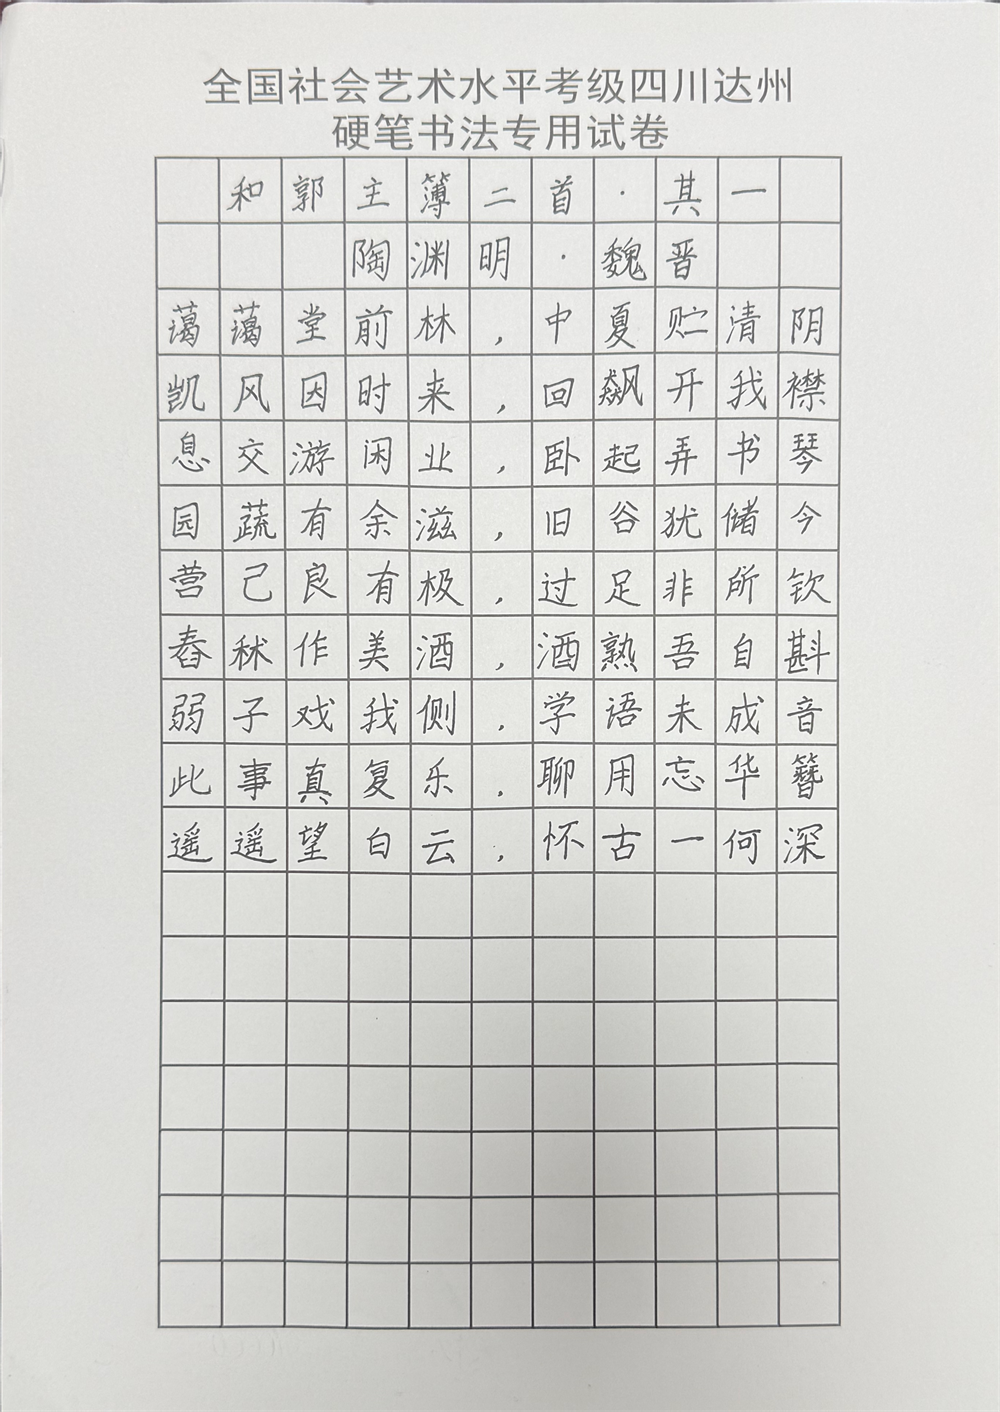 全国社会艺术水平考级四川达州
硬笔书法专用试卷
和郭主簿二首·其一
陶渊明·魏晋
蔼蔼堂前林，中夏贮清阴
凯风因时来，回飙开我襟
息交游闲业，卧起弄书琴
园蔬有余滋，旧谷犹储今
营己良有极，过足非所钦
舂秫作美酒，酒熟吾自斟
弱子戏我侧，学语未成音
此事真复乐，聊用忘华簪
遥遥望白云，怀古一何深